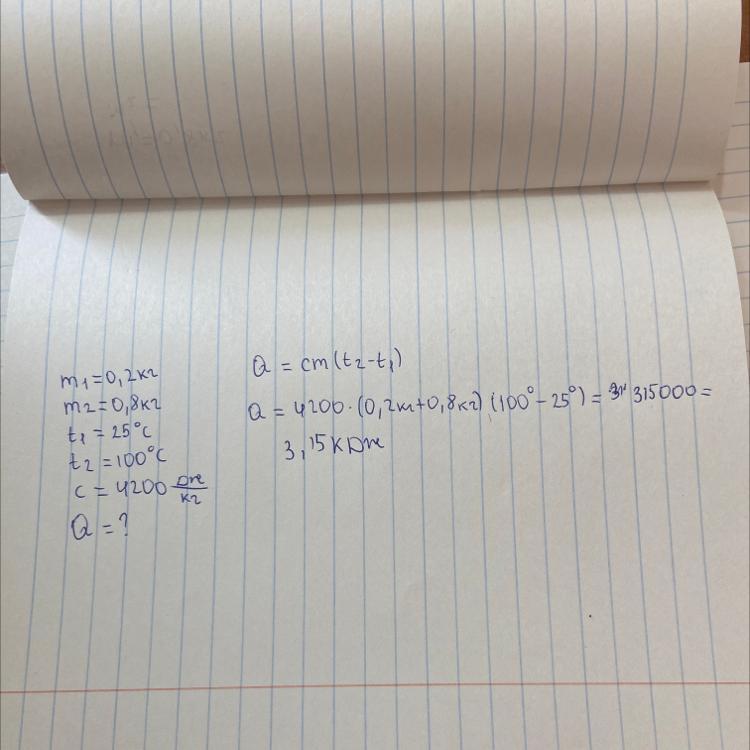 m₁ = 0,2 кг
m₂ = 0,8 кг
t₁ = 25°C
t₂ = 100°C
c = 4200 Дж/кг
Q = ?
Q = cm(t₂-t₁)
Q = 4200·(0,2кг+0,8кг)(100°-25°) = 315000 =
3,15 кДж